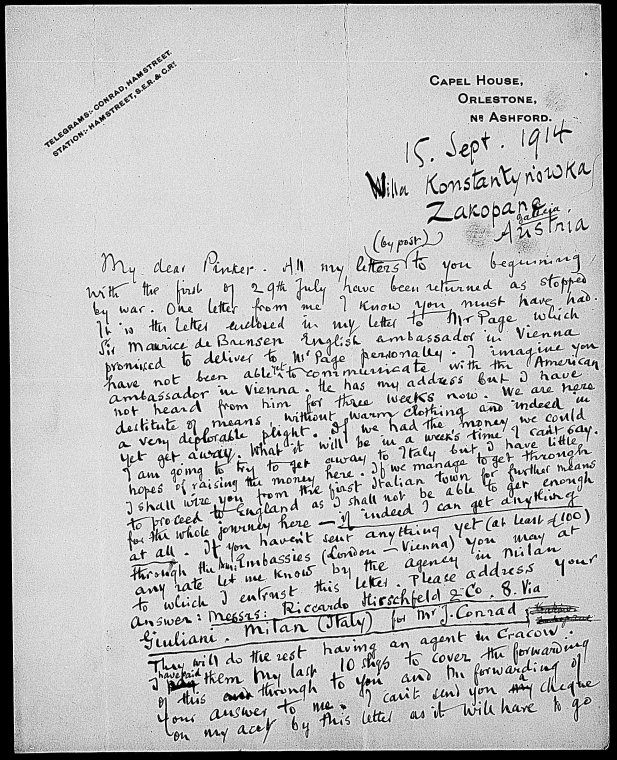 TELEGRAMS:- CONRAD, HAMSTREET.
STATION:- HAMSTREET, S.E.R. & C.RY
CAPEL HOUSE,
ORLESTONE,
NR ASHFORD.
15. Sept. 1914
Willa Konstantynówka
Zakopane
galicia
Austria
(by post)
My dear Pinker. All my letters to you beginning
with the first of 29th July have been returned as stopped
by war. One letter from me I know you must have had.
It is the letter enclosed in my letter to Mr Page which
Sir Maurice de Bunsen English ambassador in Vienna
promised to deliver to Mr Page personally. I imagine you
have not been able to communicate with the American
ambassador in Vienna. He has my address but I have
not heard from him for three weeks now. We are here
destitute of means, without warm clothing and indeed in
a very deplorable plight. If we had the money we could
yet get away. What it will be in a week's time I can't say.
I am going to try to get away to Italy but I have little
hopes of raising the money here. If we manage to get through
I shall wire you from the first Italian town for further means
to proceed to England as I shall not be able to get enough
for the whole journey here — if indeed I can get anything
at all. If you haven't sent anything yet (at least £100)
through the Am: Embassies (London — Vienna) you may at
any rate let me know by the agency in Milan
to which I entrust this letter. Please address your
answer: Messrs: Riccardo Hirschfeld & Co. 8. Via
Giuliani. Milan (Italy) for Mr J. Conrad
They will do the rest having an agent in Cracow.
I have paid them my last 10 shgs to cover the forwarding
of this through to you and the forwarding of
your answer to me. I can't send you a cheque
on my acct by this letter as it will have to go